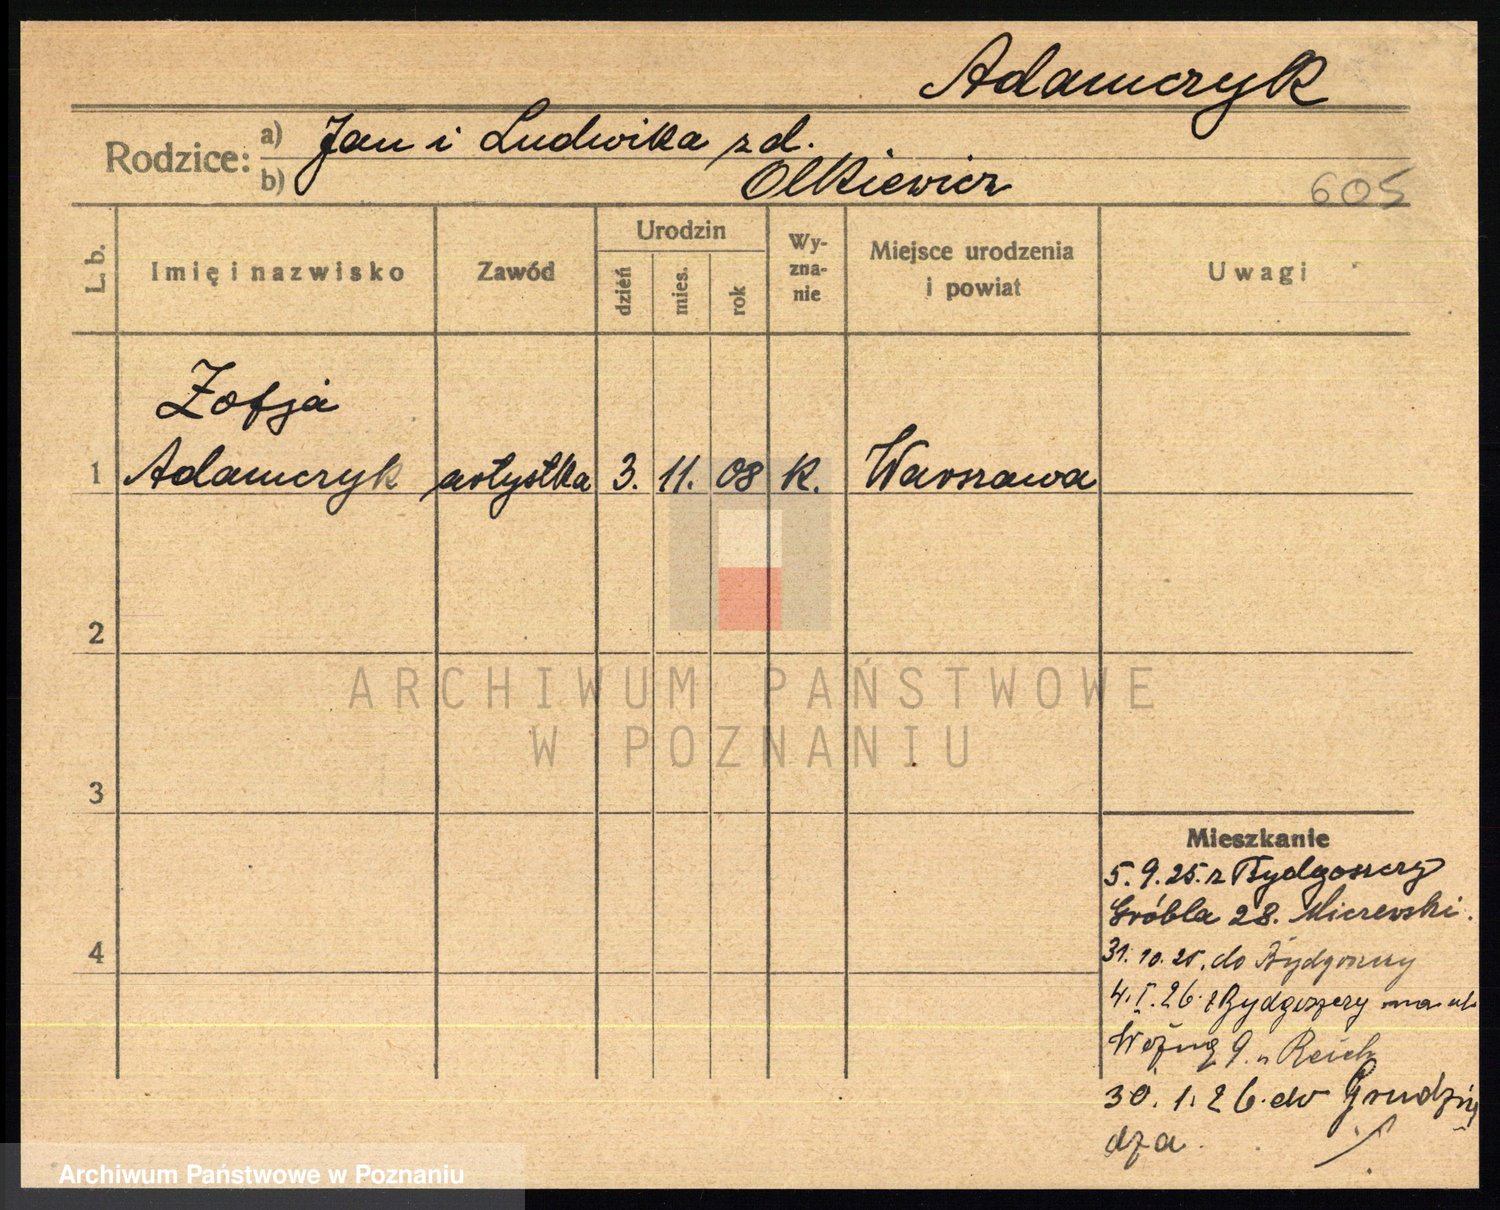 Adamczyk
Rodzice:
a) Jan i Ludwika z d.
b) Olkiewicz
605
L. b.
Imię i nazwisko
Zawód
Urodzin
dzień
mies.
rok
Wy-
zna-
nie
Miejsce urodzenia
i powiat
Uwagi
Zofja
1 Adamczyk artystka 3. 11. 08 k. Warszawa
2
3
4
Mieszkanie
5.9.25. z Bydgoszczy
Gróbla 28. Miczewski.
31.10.25. do Bydgoszczy
4.I.26. z Bydgoszczy na ul.
Woźną 9. u Reich
30.1.26. do Grudzią
dza.
ARCHIWUM PAŃSTWOWE
W POZNANIU
Archiwum Państwowe w Poznaniu